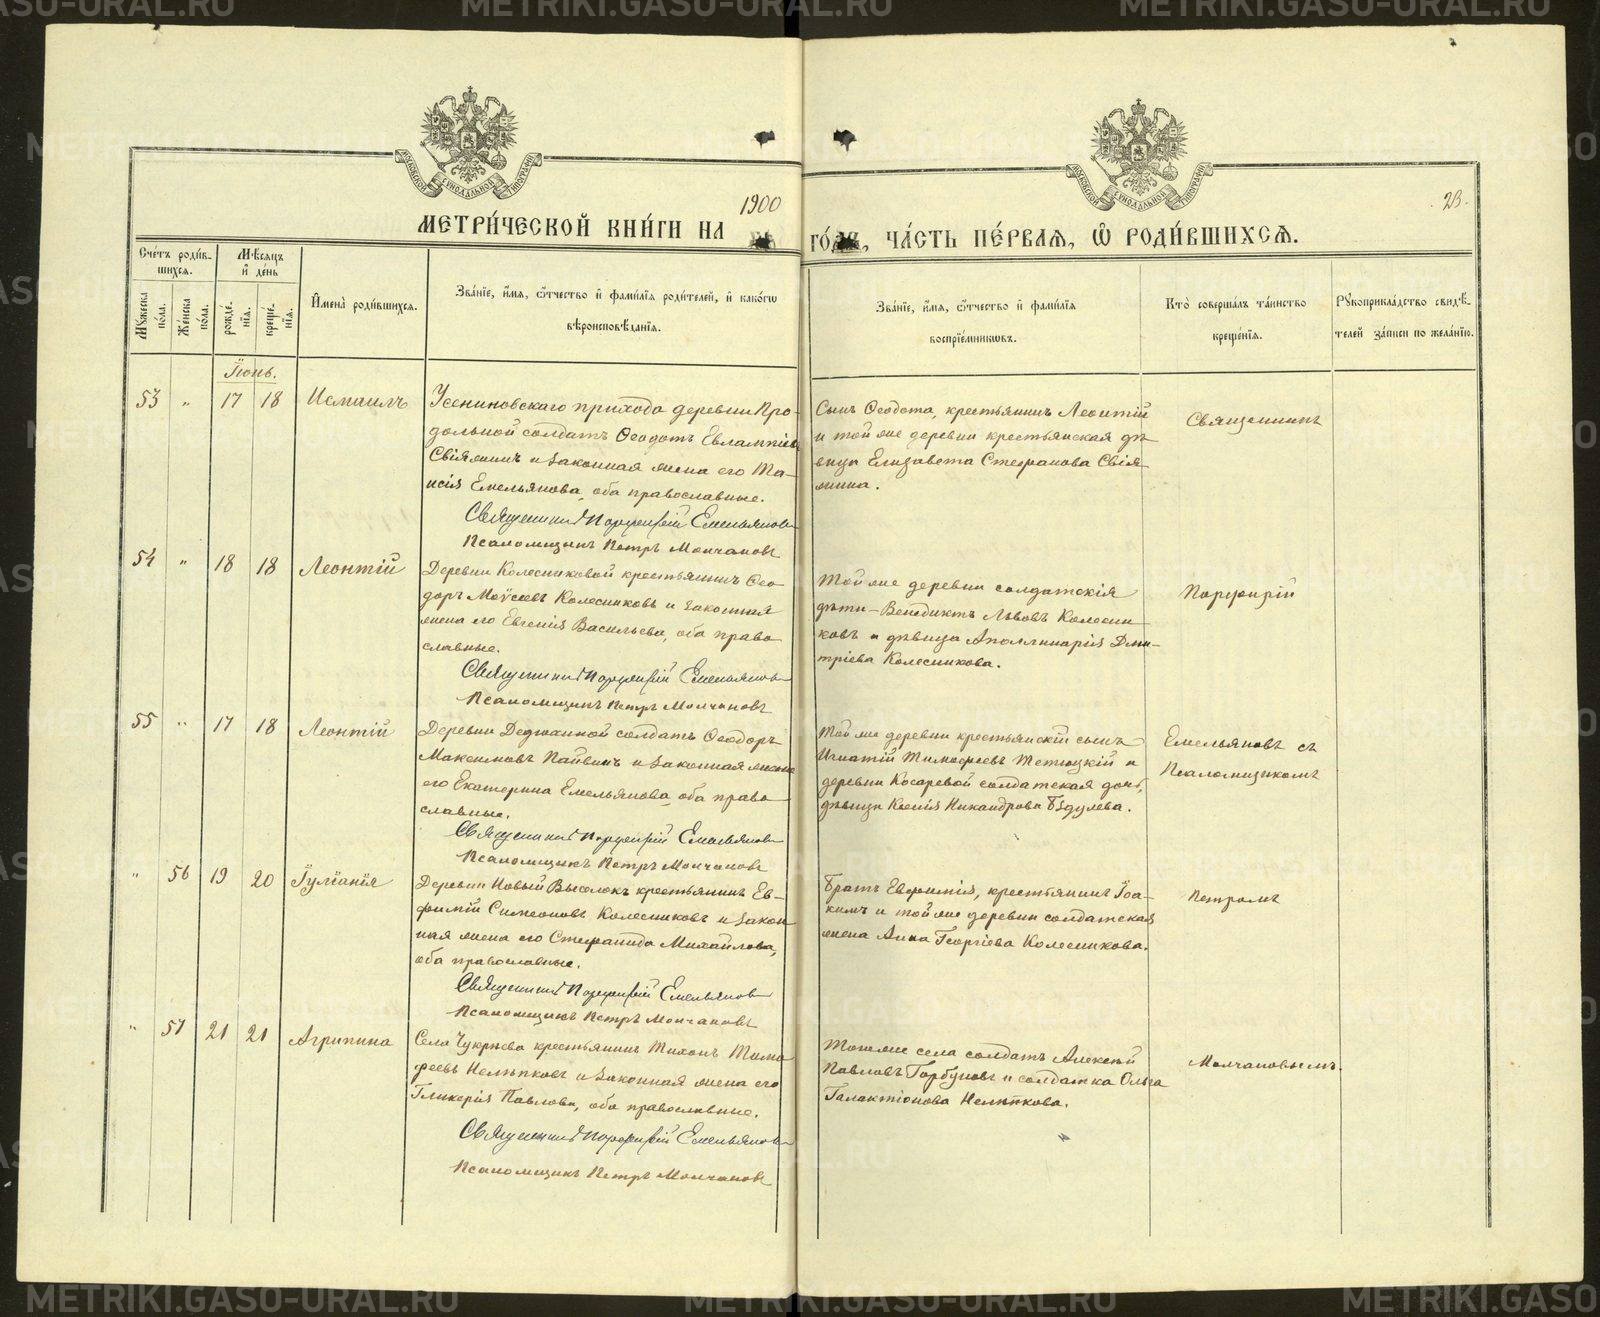 METRIKI.GASO-URAL.RU
1900
23.
МЕТРИ́ЧЕСКОЙ КНИ́ГИ НА ГО́ДЪ, ЧА́СТЬ ПЕ́РВАѦ, Ѡ РОДИ́ВШИХСѦ.
Счетъ роди́в-
шихсѧ.
Мꙋжеска по́ла.
Же́нска по́ла.
Мѣсѧцъ и день
рожде́нїѧ.
креще́нїѧ.
Имена̀ роди́вшихсѧ.
Зва́нїе, и́мѧ, ѻ́тчество и фами́лїѧ роди́телей, и како́гѡ
вѣроисповѣ́данїѧ.
Зва́нїе, и́мѧ, ѻ́тчество и фами́лїѧ
воспрїе́мникѡвъ.
Кто̀ соверша́лъ та́инство
креще́нїѧ.
Рꙋкоприкла́дство свидѣ́-
телей за́писи по жела́нїю.
Іюнь.
53 " 17 18 Исмаилъ
Усениновскаго прихода деревни Про-
дольной солдатъ Ѳеодотъ Евлампіевъ
Свіяжинъ и законная жена его Та-
исія Емельянова, оба православные.
Священникъ Порфирій Емельяновъ
Псаломщикъ Петръ Молчановъ
Сынъ Ѳеодота, крестьянинъ Леонтій
и той же деревни крестьянская дѣ-
вица Елизавета Стефанова Свія-
жина.
Священникъ
54 " 18 18 Леонтій
Деревни Колесниковой крестьянинъ Ѳео-
доръ Моѵсеевъ Колесниковъ и законная
жена его Евгенія Васильева, оба право-
славные.
Священникъ Порфирій Емельяновъ
Псаломщикъ Петръ Молчановъ
Той же деревни солдатскія
дѣти – Венедиктъ Львовъ Колесни-
ковъ и дѣвица Аполлинарія Дми-
тріева Колесникова.
Порфирій
55 " 17 18 Леонтій
Деревни Дедюхиной солдатъ Ѳеодоръ
Максимовъ Пайвинъ и законная жена
его Екатерина Емельянова, оба право-
славные.
Священникъ Порфирій Емельяновъ
Псаломщикъ Петръ Молчановъ
Той же деревни крестьянскій сынъ
Игнатій Тимофеевъ Тетюцкій и
деревни Косаревой солдатская дочь,
дѣвица Ксенія Никандрова Бздулева.
Емельяновъ съ
Псаломщикомъ
" 56 19 20 Іуліанія
Деревни Новый Выселокъ крестьянинъ Ев-
фимій Симеоновъ Колесниковъ и закон-
ная жена его Стефанида Михайлова,
оба православные.
Священникъ Порфирій Емельяновъ
Псаломщикъ Петръ Молчановъ
Братъ Евфимія, крестьянинъ Іоа-
кимъ и той же деревни солдатская
жена Анна Георгіева Колесникова.
Петромъ
" 57 21 21 Агрипина
Села Чукрѣева крестьянинъ Тихонъ Тимо-
феевъ Нелѣпковъ и законная жена его
Гликерія Павлова, оба православные.
Священникъ Порфирій Емельяновъ
Псаломщикъ Петръ Молчановъ
Тогоже села солдатъ Алексѣй
Павловъ Горбуновъ и солдатка Ольга
Галактіонова Нелѣпкова.
Молчановымъ.